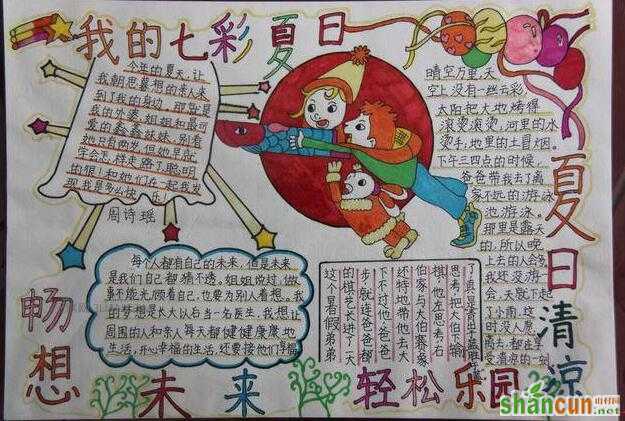 我的七彩夏日
今年的夏天,让
我朝思暮想的亲人来
到了我的身边,那就是
我的外婆、姐姐和最可
爱的鑫鑫妹妹,别看
她只有两岁,但她早就
学会怎样走路了,聪明
的很!和她们在一起我发
现我是多么快乐!
周诗瑶
晴空万里,天
空上没有一丝云彩,
太阳把大地烤得
滚烫滚烫,河里的水
烫手,地里的土冒烟。
下午三四点的时候,
爸爸带我去了离
家不远的游泳
池游泳。
那里是露天
的,所以晚
上去的人会多
我还没游
会,天就下起
了小雨,这
时没人愿
离去,都在享
受清凉的一刻
夏日清凉
每个人都有自己的未来,但是未来
是我们自己都猜不透。姐姐说过,做
事不能光顾着自己,也要为别人着想。我
的梦想是长大以后当一名医生。我想让
周围的人和亲人每天都健健康康地
生活,开心幸福的生活,还要接他们
畅想未来
思考,把大伯下输
棋,他左思考右
伯家与大伯赛象
还特地带他去大
下不过他,爸爸
步,就连爸爸都
的棋艺长进了一大
这个暑假弟弟
轻松乐园
shancun
山村网
.net